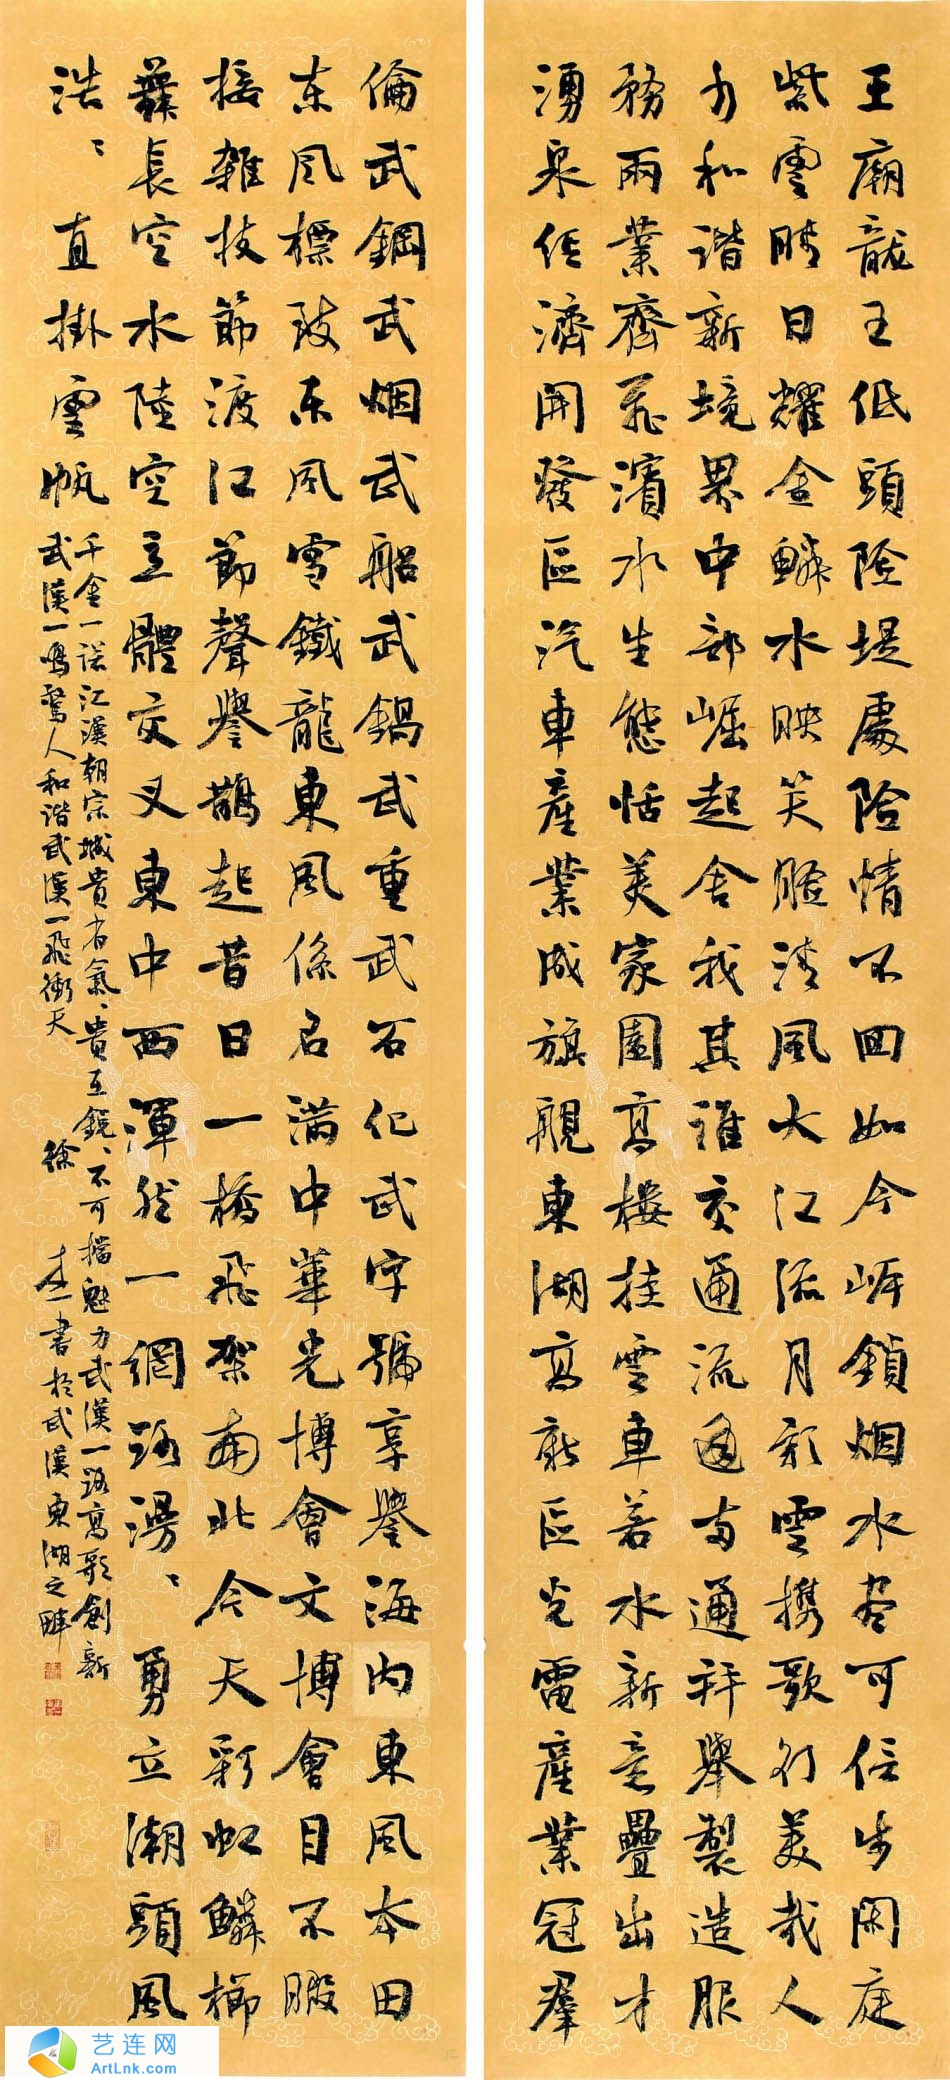 王廟龍王低頭險堤處險情不回如今岸鎖烟水盡可信步閑庭
紫雲晴日耀金鱗水映笑臉清風大江流月彩雲携歌行美哉人
和諧新境界中部崛起舍我其誰交通流通兩通并舉製造服
務兩業齊飛濱水生態恬美家園高樓挂雲車若水新意疊出才
湧泉經濟開發區汽車產業成旗艦東湖高新區光電產業冠羣
倫武鋼武烟武船武鍋武重武石化武字號享譽海内東風本田
東風標致東風雪鐵龍東風係名滿中華光博會文博會目不暇
接雜技節渡江節聲譽鵲起昔日一橋飛架南北今天彩虹鱗櫛
舞長空水陸空立體交叉東中西渾然一網路漫々勇立潮頭風
浩々直掛雲帆
千金一諾江漢朝宗城貴有氣々貴互銳々不可擋魅力武漢一路高歌創新
武漢一鳴驚人和諧武漢一飛衝天 徐本一書於武漢東湖之畔
艺连网
ArtLnk.com